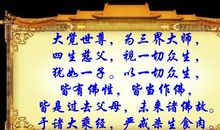 大觉世尊，为三界大师，
四生慈父，视一切众生，
犹如一子。以一切众生，
皆有佛性，皆当作佛，
皆是过去父母，未来诸佛故。
于诸大乘经，严戒杀生食肉，